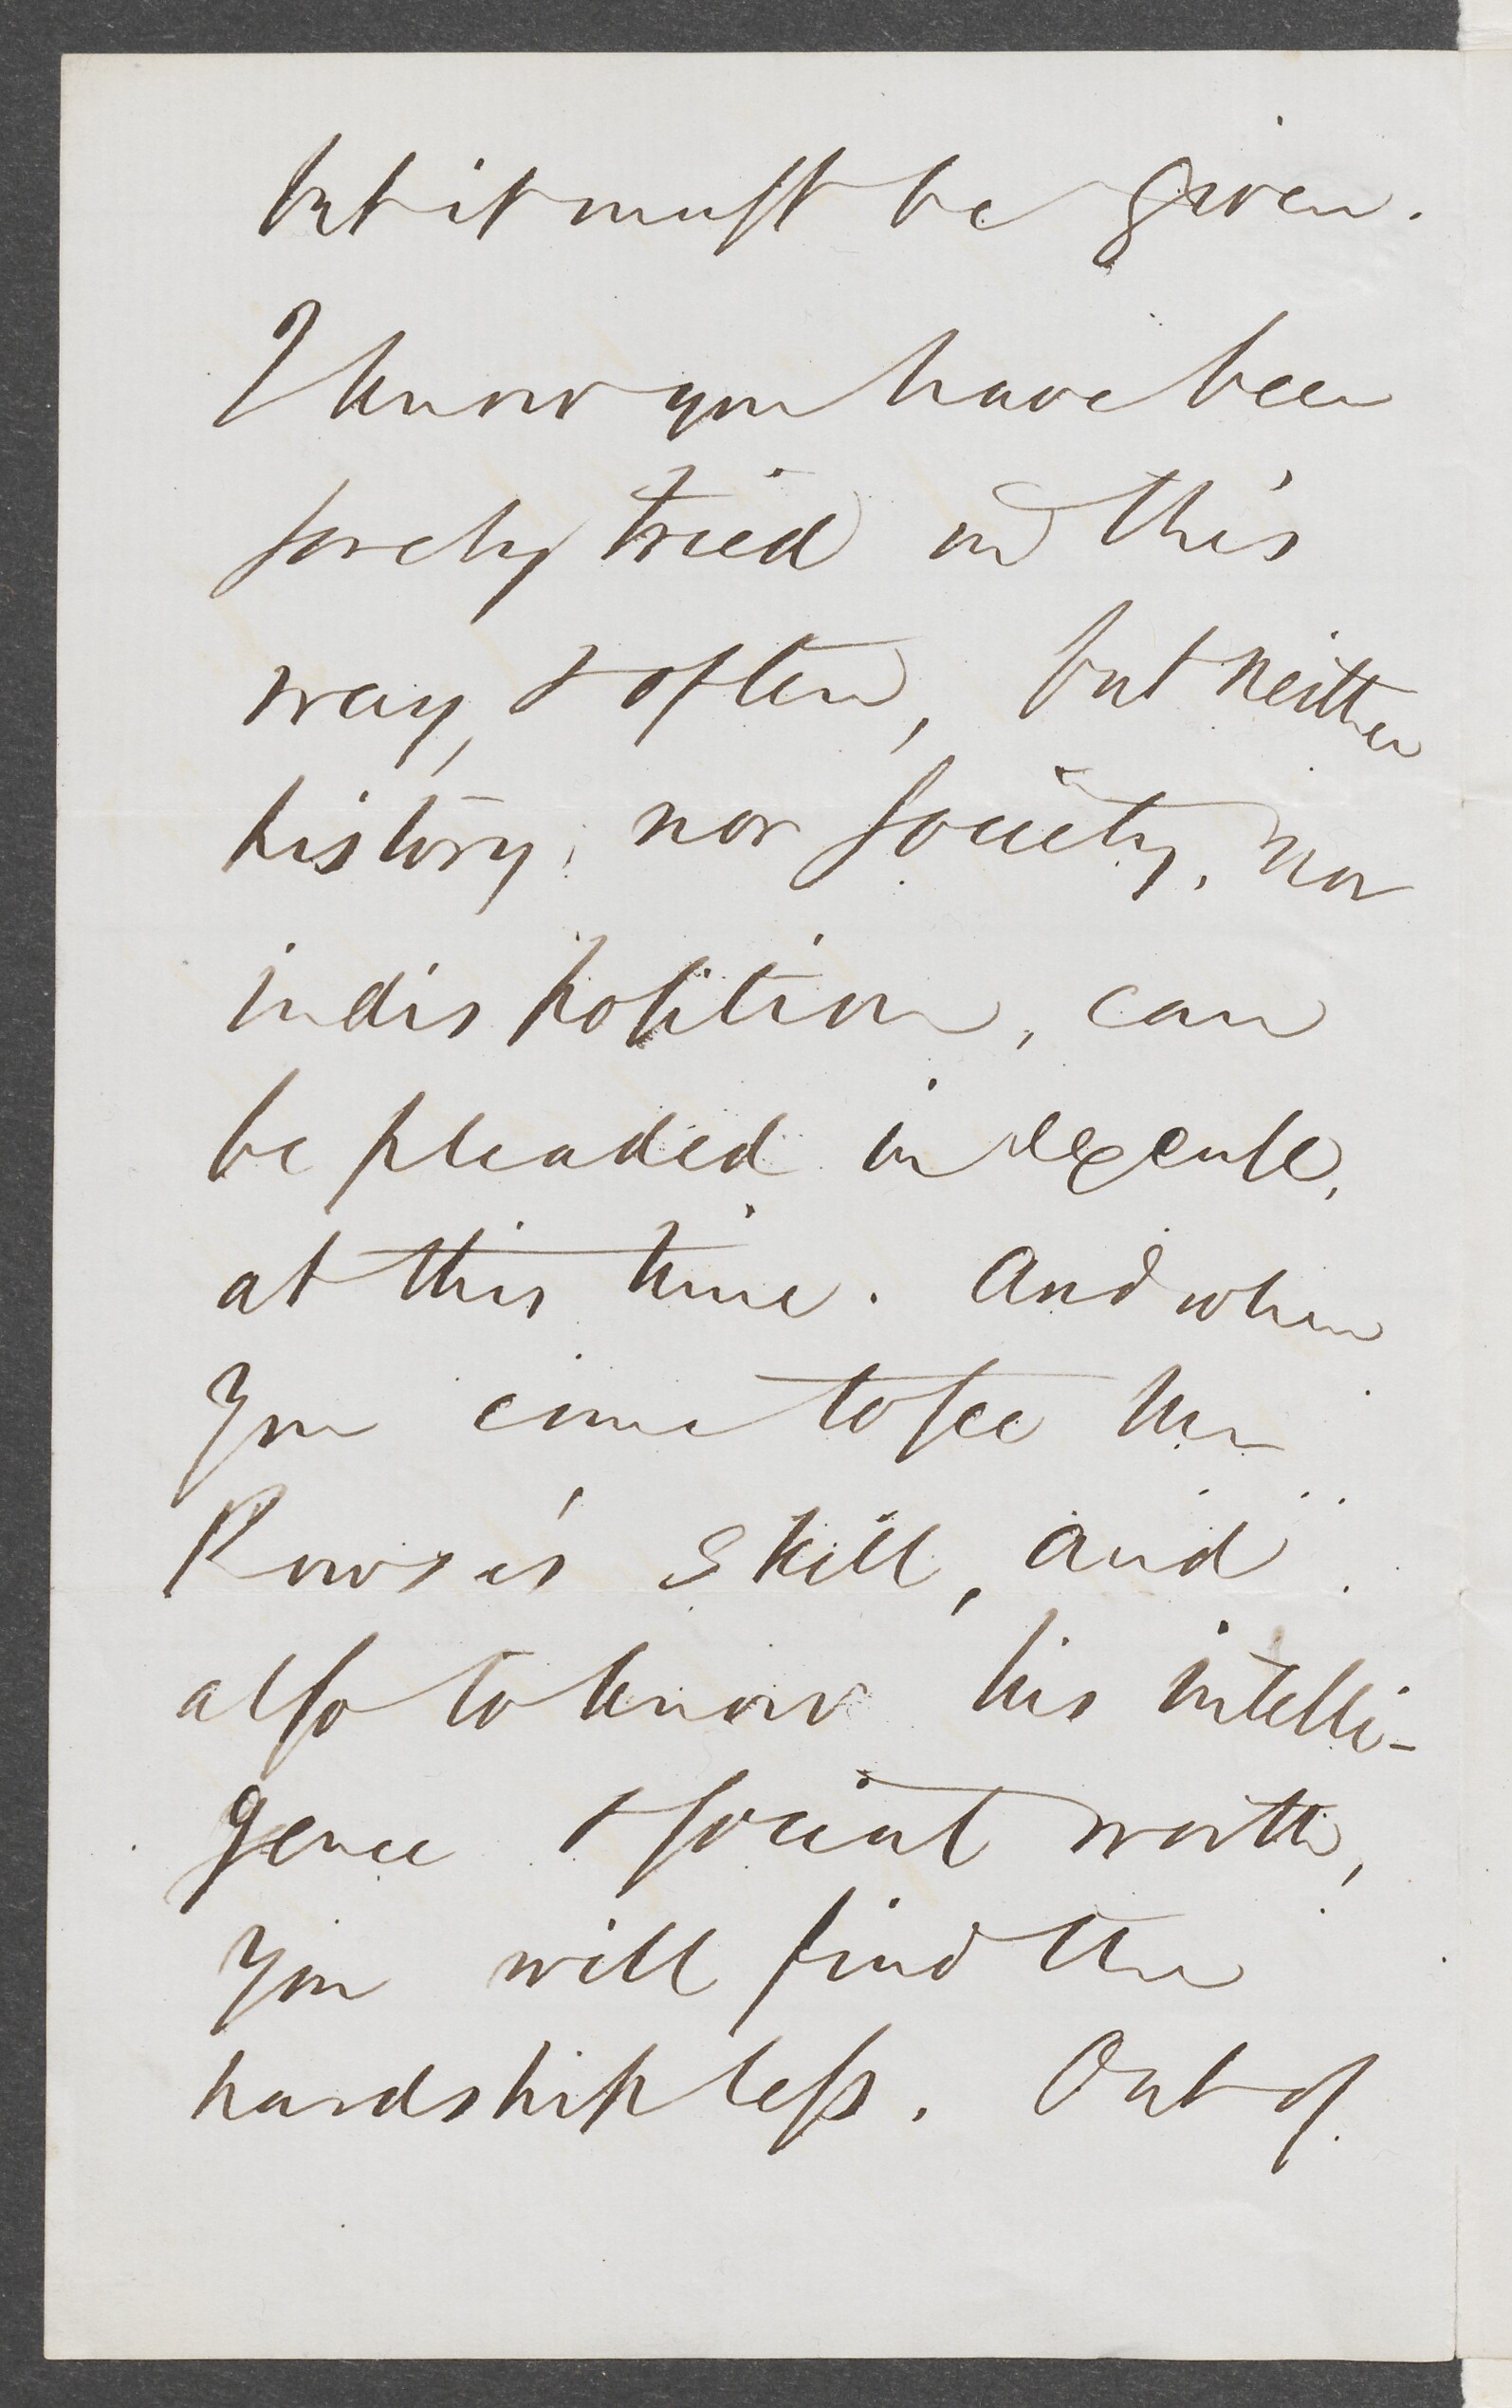 but it must be given.
I know you have been
sorely tried in this
way, & often, but neither
history, nor society, nor
indisposition, can
be pleaded in excuse,
at this time. And when
you come to see Mr
Rowse's skill, and
also to know his intelli-
gence & social worth,
you will find the
hardship less. Out of